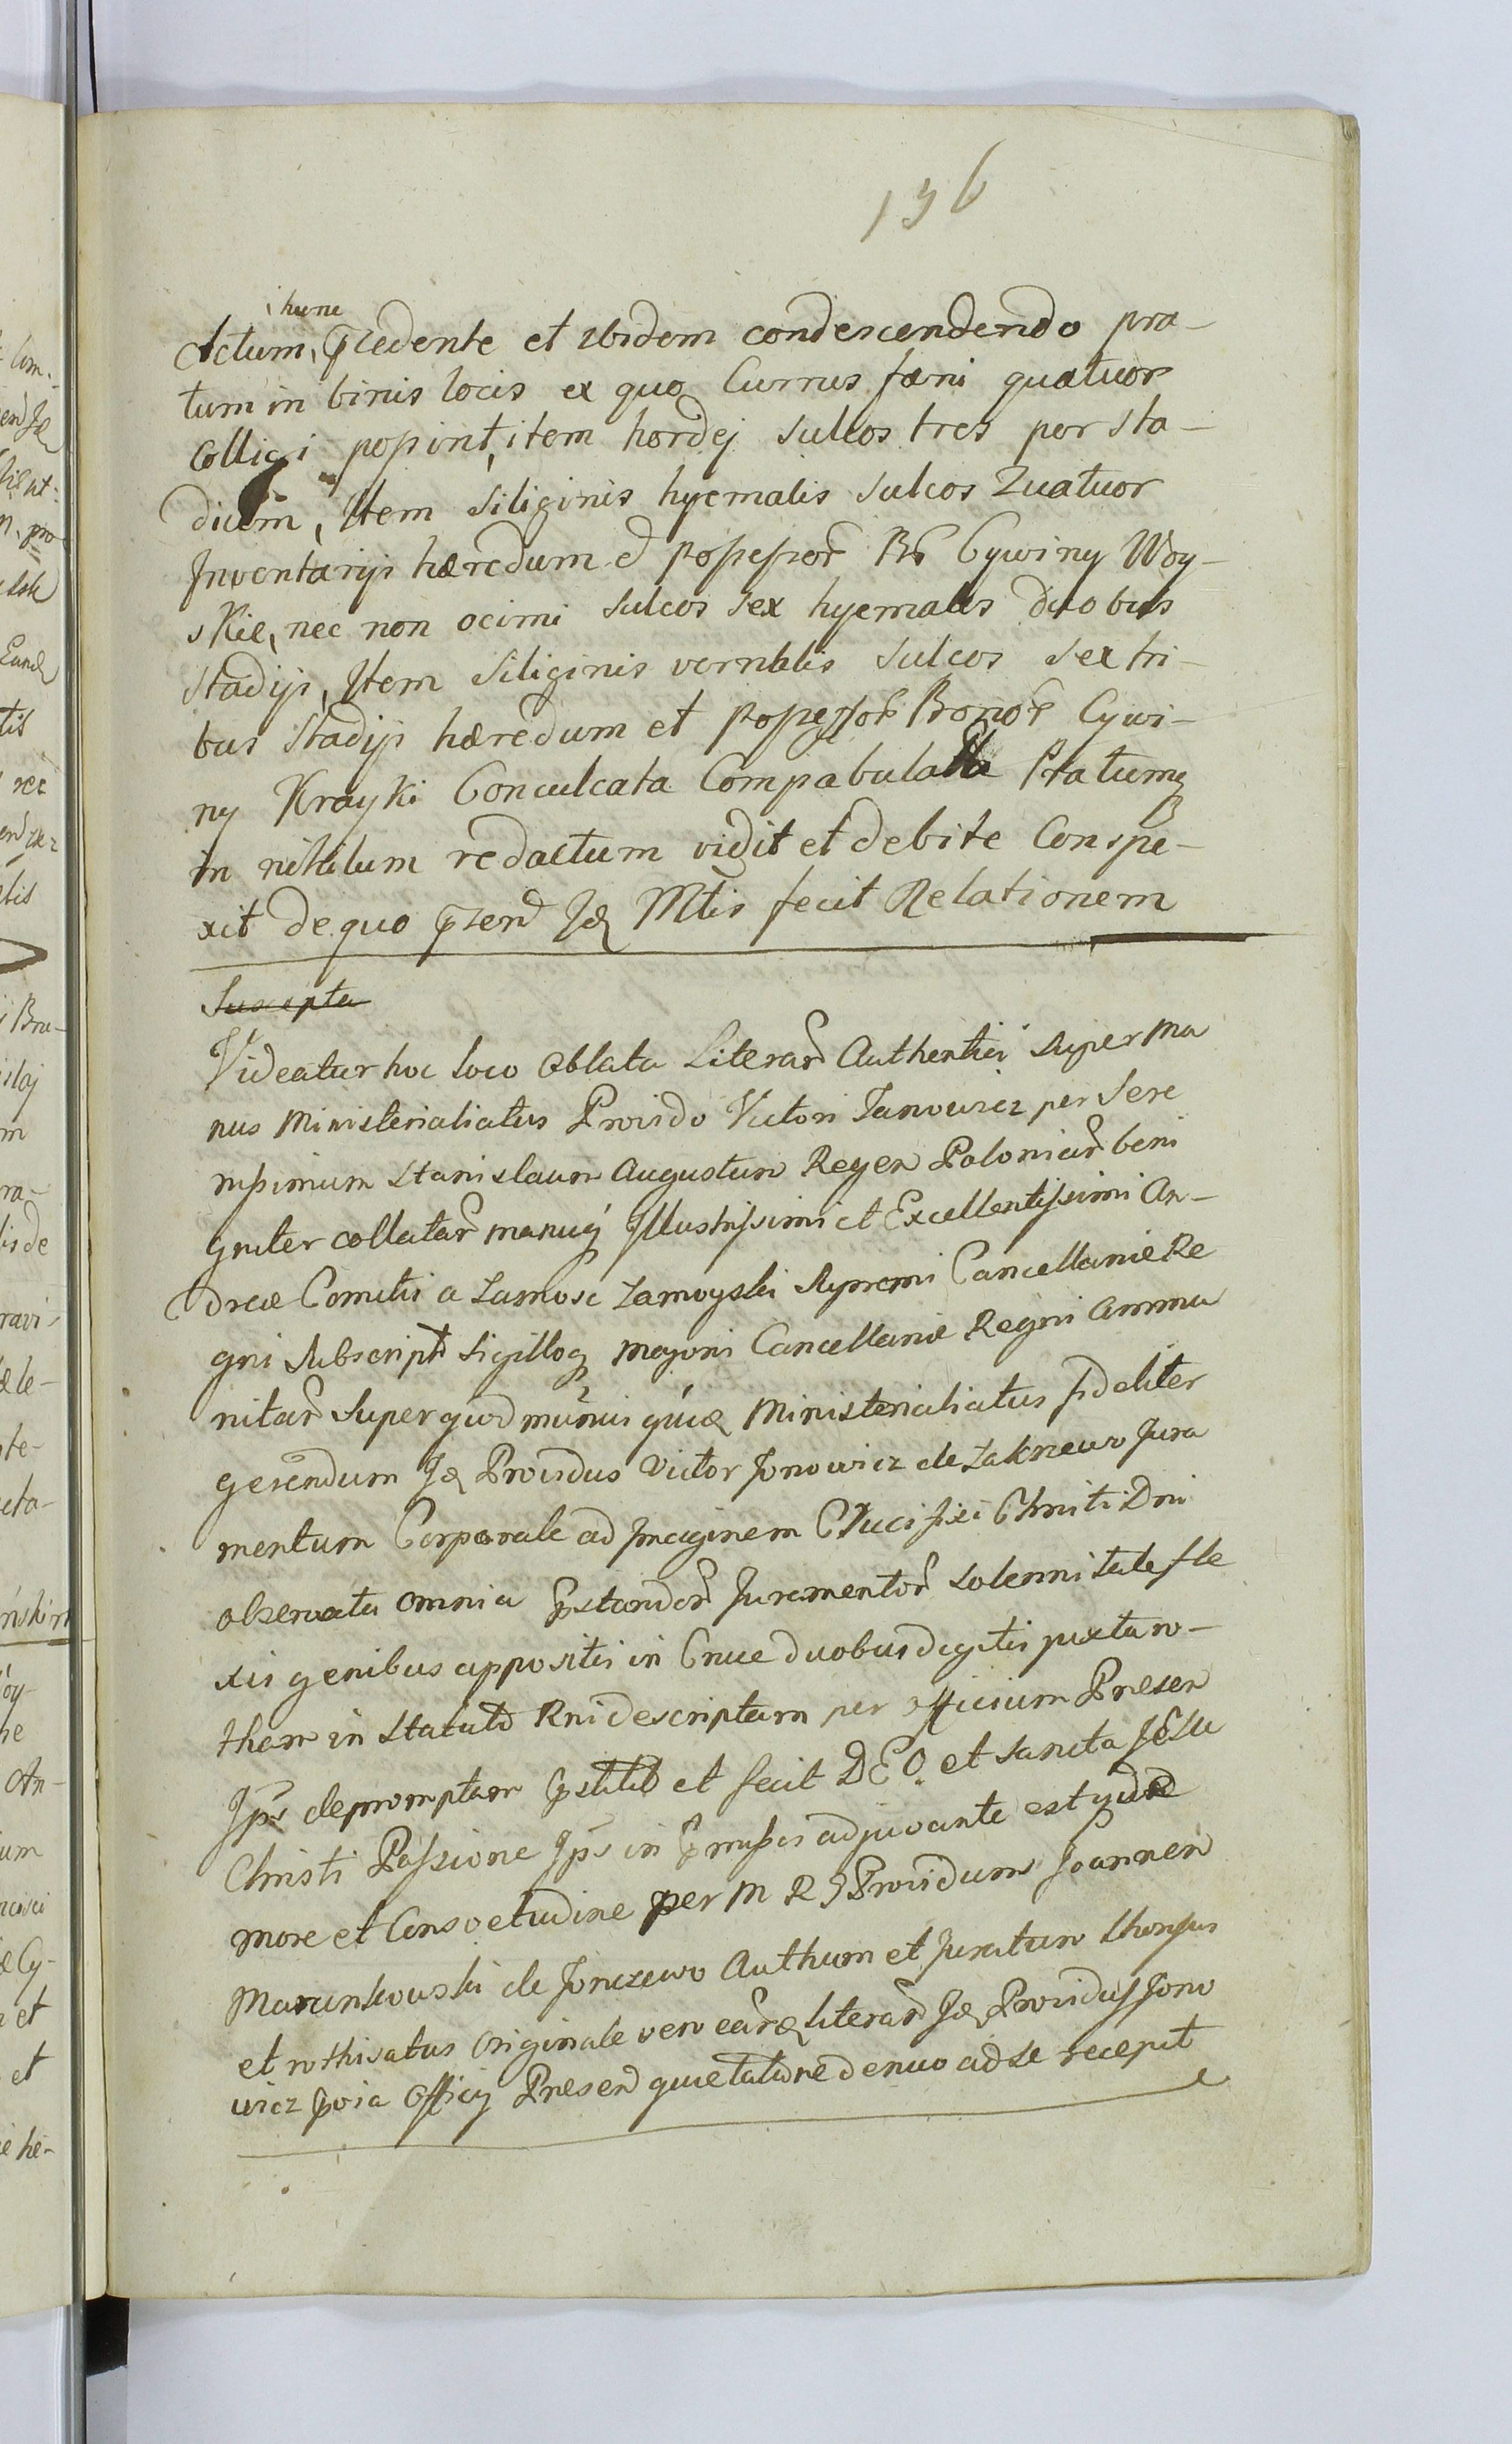 136
hunc
Actum, prcedente et ibidem condescendendo pra-
tum in binis locis ex quo Currus fæni quatuor
Colligi possint, item hordej Sulcos tres per sta-
dium, Item Siliginis hyemalis Sulcos Quatuor
Inventarys hæredum et possessor Br Cywiny Woy-
skie, nec non ocimi Sulcos Sex hyemalis duobus
stadijs, Item Siliginis vernalis Sulcos Sex tri-
bus Stadijs hæredum et possessor Bonor Cywi-
ny Krayki Conculcata Compabulata Pratumq
in nihilum redactum vidit et debite Conspe-
xit de quo prsen Id Mtis fecit Relationem
Suscepta
Videatur hoc loco Oblata Literar Authentici super mu
nus Ministerialiatus Provido Victori Janowicz per Sere
nissimum Stanislaum Augustum Regem Poloniar beni
gniter collatar manuq Illustrissimi et Excellentissimi An-
dreæ Comitis a Zamosc Zamoyski Supremi Cancellariæ Re
gni Subscript Sigilloq majoris Cancellariæ Regni Commu
nitar Super quod munus quiæ Ministerialiatus fideliter
gerendum Id Providus Victor Jonowicz de Zakrzewo Jura
mentum Corporale ad Imaginem Crucifixi Christi Dni
observata omnia prstandor Juramentor Solennitate fle
xis genibus appositis in Cruce duobus digitis juxta ro-
tham in Statuto Rni descriptam per officium Presen
Ips depromptam prstitit et fecit DEO et Sancta JESU
Christi Passione Ips in prmissis adjuvante est quod
more et Consvetudine per M R Providum Joannem
Marunkowski de Jonczewo Authum et Juratum
et rothisatus Originale vero earq literar Id Providus Jono
wicz prvia Officij Presen quietatione denuo ad se recepit